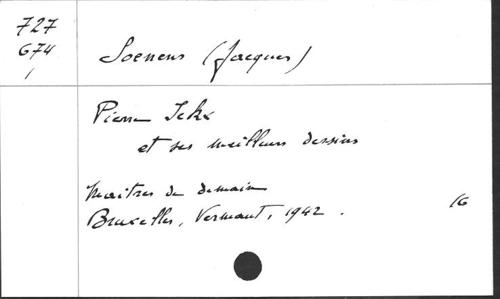 727
674
/
Soenens (Jacques)
Pierre Ickx
et ses meilleurs dessins
Maitres de demain
Bruxelles, Vermaut, 1942.
16